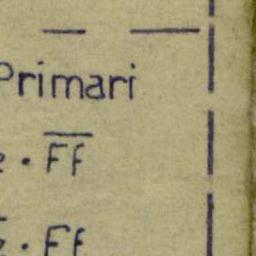 Primari
. F̅f̅
. Ff